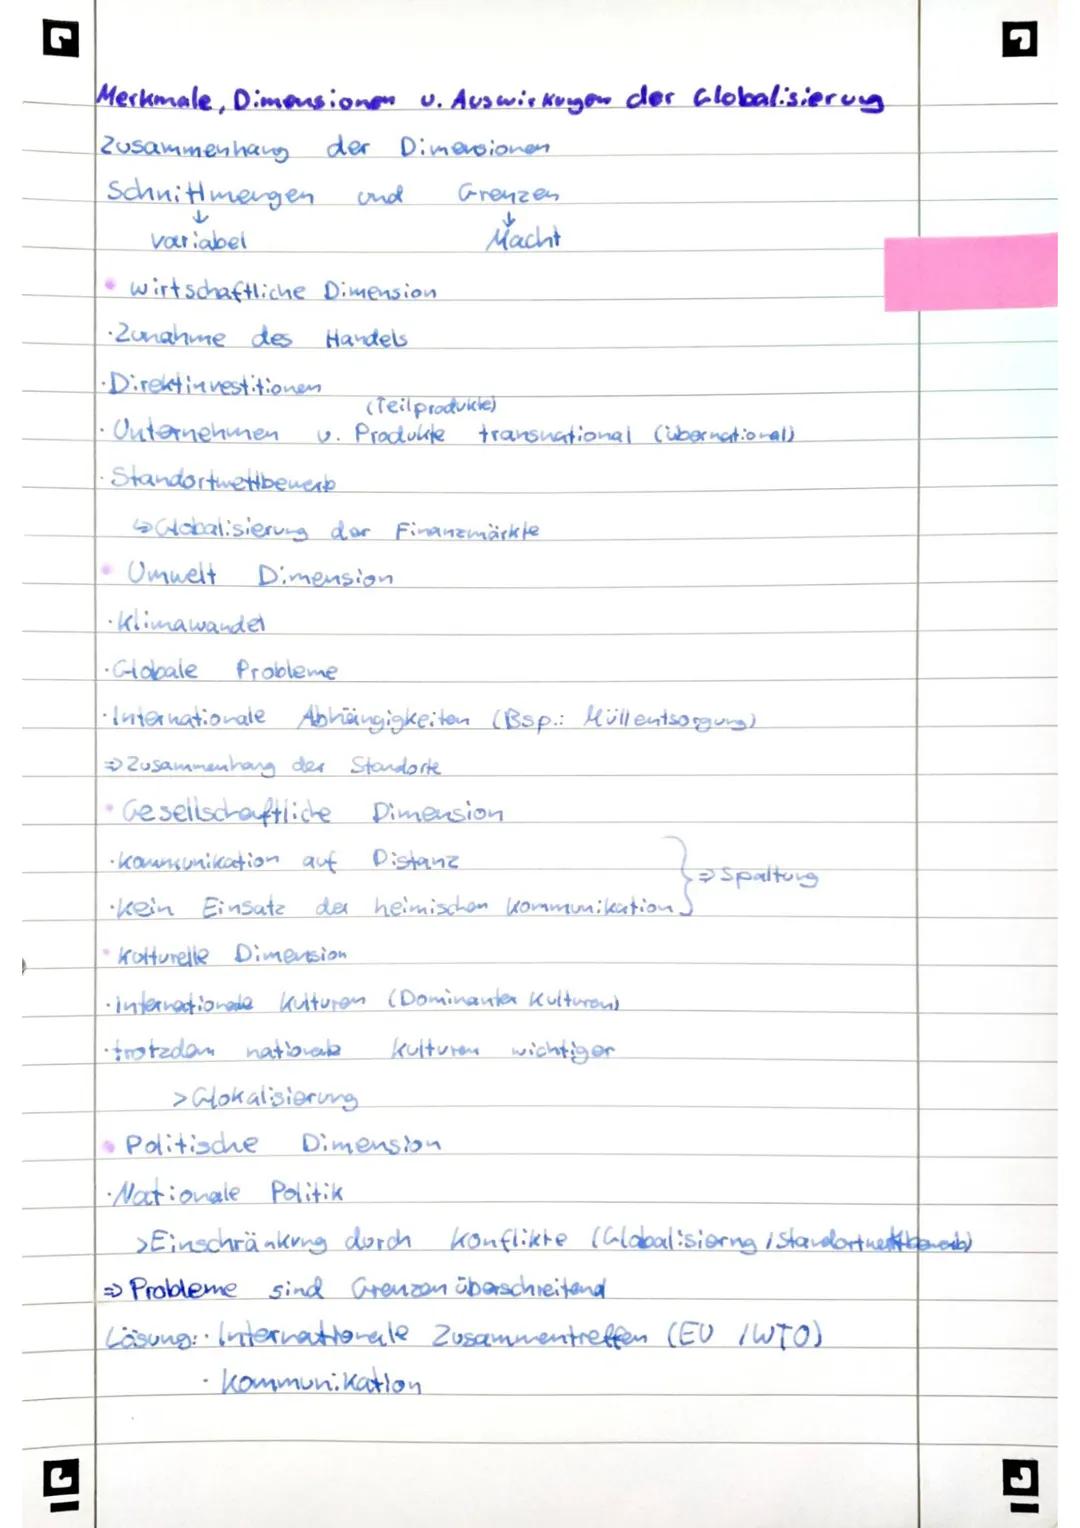 Merkmale, Dimensionen u. Auswirkungen der Globalisierung
Zusammenhang der Dimensionen
Schnittmengen und Grenzen
↓ ↓
variabel Macht
• wirtschaftliche Dimension
·Zunahme des Handels
·Direktinvestitionen
(Teilprodukte)
·Unternehmen u. Produkte transnational (übernational)
·Standortwettbewerb
↳Globalisierung der Finanzmärkte
• Umwelt Dimension
·Klimawandel
·Globale Probleme
·Internationale Abhängigkeiten (Bsp.: Müllentsorgung)
⇒Zusammenhang der Standorte
• Gesellschaftliche Dimension
·Kommunikation auf Distanz
⇒Spaltung
·kein Einsatz der heimischen Kommunikation
• Kulturelle Dimension
·Internationale Kulturen (Dominanter Kulturen)
·trotzdem nationale Kulturen wichtiger
>Glokalisierung
• Politische Dimension
·Nationale Politik
>Einschränkung durch Konflikte (Globalisierng / Standortwettbewerb)
⇒Probleme sind Grenzen überschreitend
Lösung: · Internationale Zusammentreffen (EU / WTO)
· Kommunikation